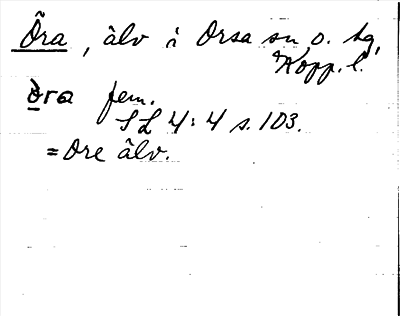 Öra, älv i Orsa sn o. tg,
Kopp. l.
òra fem.
SL 4:4 s. 103.
= Ore älv.